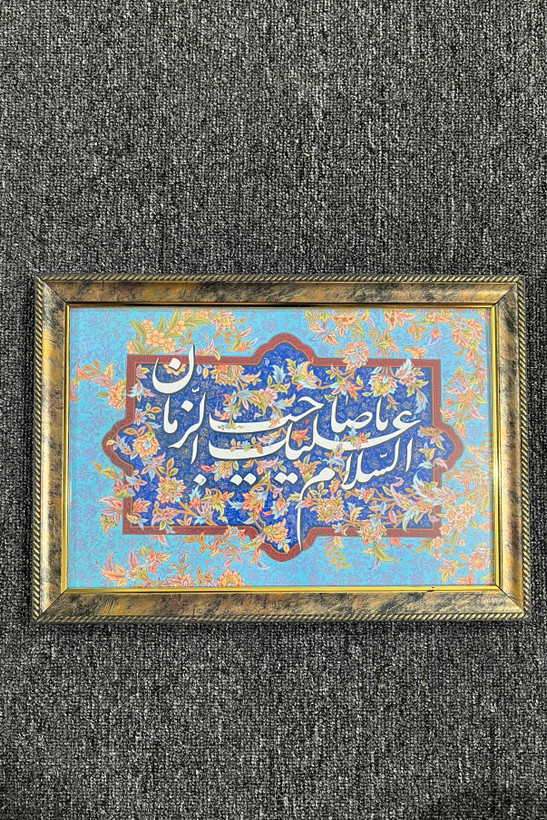 السَّلامُ عليك يا صاحب الزَّمان